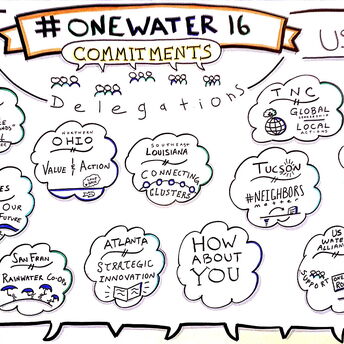 #ONEWATER 16
COMMITMENTS
US
Delegations
NORTHERN
OHIO
VALUE & ACTION
SOUTHEAST
LOUISIANA
CONNECTING
CLUSTERS
TNC
GLOBAL
LOCAL
ACTIONS
TUCSON
#NEIGHBORS
matter
OUR
FUTURE
SAN FRAN
RAINWATER CO-OPS
ATLANTA
STRATEGIC
INNOVATION
HOW
ABOUT
YOU
US
WATER
ALLIAN
SUPPORT
ONE